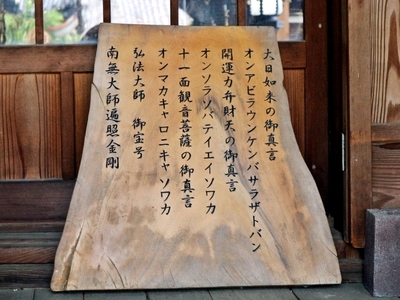 大日如来の御真言
オンアビラウンケンバサラザトバン
開運力弁財天の御真言
オンソラソバテイエイソワカ
十一面観音菩薩の御真言
オンマカキャロニキャソワカ
弘法大師 御宝号
南無大師遍照金剛